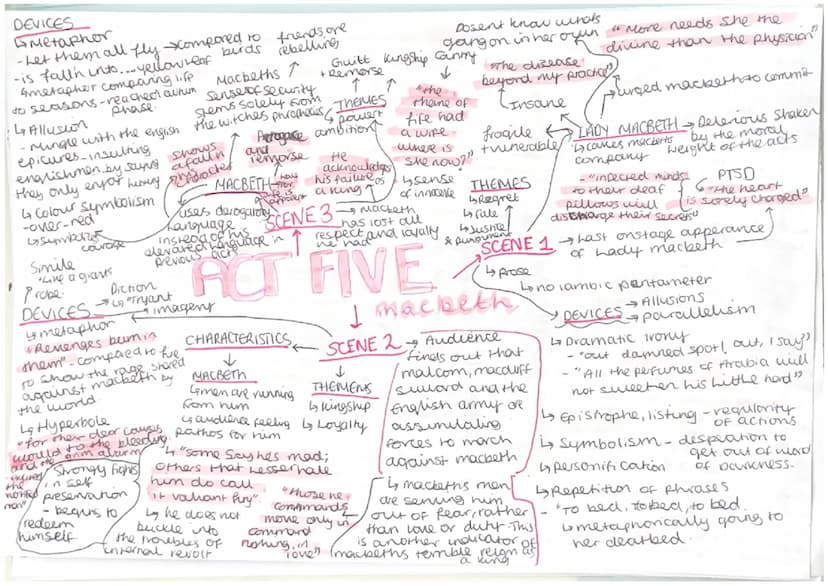 DEVICES
↳ Metaphor
- Let them all fly → compared to birds
friends are rebelling
- is fall'n into... yellow leaf
↳ metaphor comparing life
to seasons - reached autumn
phase.
↳ Allusion
- mingle with the english
epicures - insulting
englishmen by saying
they only enjoy luxury
↳ Colour symbolism
- over-red
↳ symbolic
courage
Macbeths
sense of security
stems solely from
the witches prophecies
Guilt
+ Remorse
Kingship
THEMES
↳ power
ambition
shows
a fall in
character
Arrogance
and
remorse
MACBETH
He
acknowledges
his failure as
a king
uses derogatory
language
instead of his
elevated language in
previous acts
SCENE 3
→ Macbeth
has lost all
respect and loyalty
he had
"the
thane of
fife had
a wife
where is
she now?"
↳ sense
of innocence
Dosent know whats
going on in her own
"More needs she the
divine than the physician"
"The disease
beyond my practice"
↳ urged macbeth to commit
Insane
fragile
+ vulnerable
LADY MACBETH
→ Delerious shaken
by the moral
weight of the acts
↳ craves macbeths
company
- "infected minds
to their deaf
pillows will
discharge their secrets"
PTSD
↳ "The heart
is sorely charged"
THEMES
↳ Regret
- Fate
↳ Justice
& punishment
SCENE 1
→ Last onstage apperance
of Lady macbeth
↳ prose
↳ no iambic pentameter
DEVICES
→ Allusions
→ parallelism
↳ Dramatic irony
- "out damned spot!, out, i say"
- "All the perfumes of Arabia will
not sweeten his little hand"
↳ Epistrophe, listing - regularity
of actions
↳ Symbolism - desperation to
get out of world
of darkness.
↳ Personification
↳ Repetition of phrases
- "To bed, to bed, to bed.
↳ metaphorically going to
her deathbed.
ACT FIVE
macbeth
Simile
"Like a giants
robe.
Diction
↳ "Tryant
imagery
DEVICES
↳ metaphor
"Revenges burn in
them" - compared to fire
to show the rage shared
against macbeth by
the world
↳ Hyperbole
"For their dear causes
would to the bleeding
and the grim alarm
excite the
mortified
man"
Strongly fights
in self
preservation
- begins to
redeem
himself
CHARACTERISTICS
MACBETH
↳ men are running
from him
↳ audience feeling
pathos for him
↳ "some say hes mad;
others that lesser hate
him do call
it valiant fury"
↳ he does not
buckle into
the troubles of
internal revolt
SCENE 2
THEMENS
↳ Kingship
↳ Loyalty
→ Audience
finds out that
malcom, macduff
siward and the
English army are
assimulating
forces to march
against macbeth
"Those he
commands
move only in
command
nothing in
love"
↳ macbeths men
are serving him
out of fear, rather
than love or duty. This
is another indicator of
macbeths terrible reign as
a king